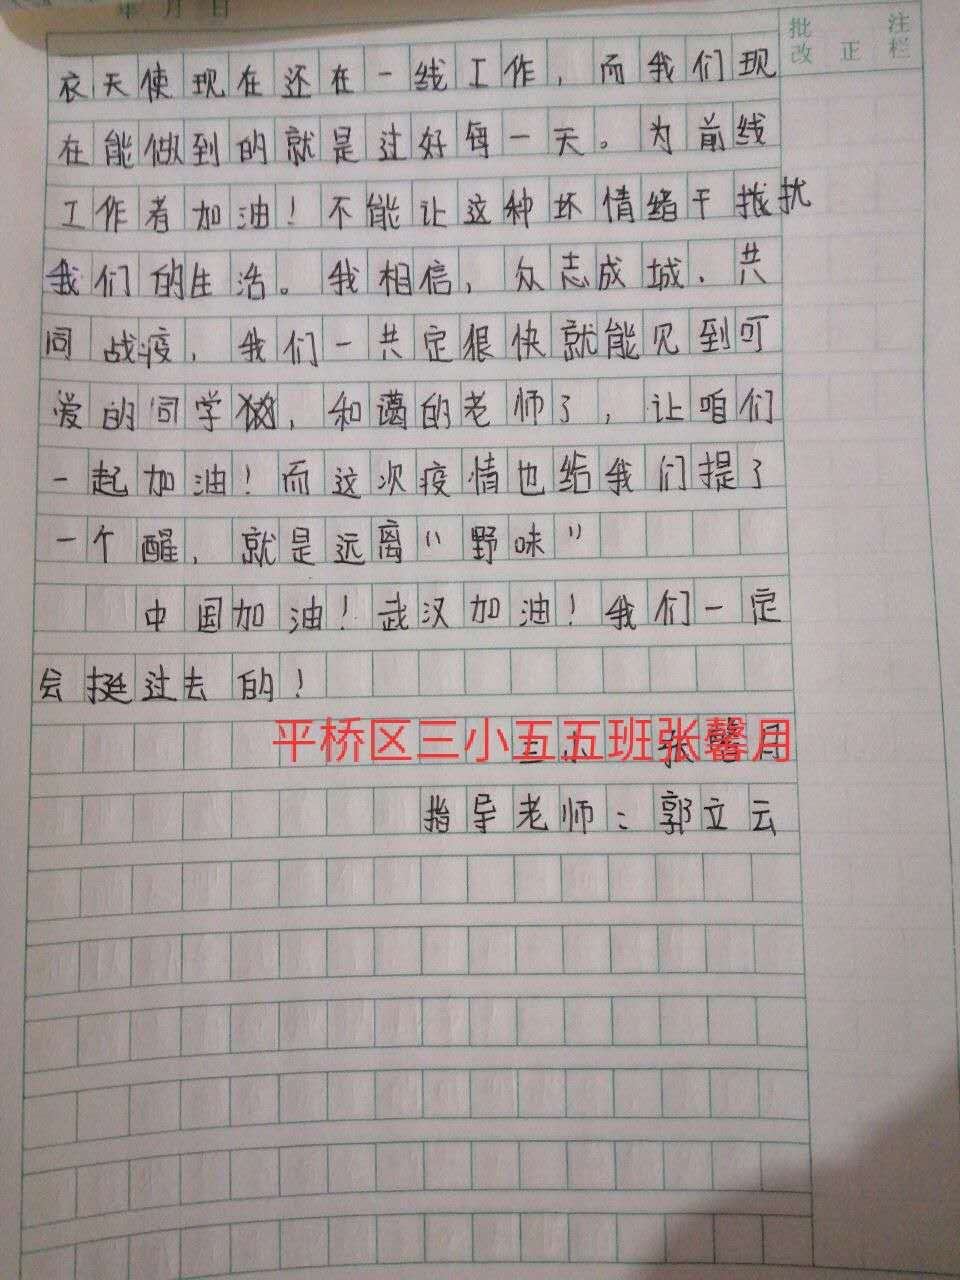 年 月 日
批 注
改 正 栏
衣天使现在还在一线工作，而我们现
在能做到的就是过好每一天。为前线
工作者加油！不能让这种坏情绪干扰
我们的生活。我相信，众志成城．共
同战疫，我们一共定很快就能见到可
爱的同学，和蔼的老师了，让咱们
一起加油！而这次疫情也给我们提了
一个醒，就是远离“野味”
中国加油！武汉加油！我们一定
会挺过去的！
平桥区三小五五班张馨月
三小 张馨月
指导老师：郭立云